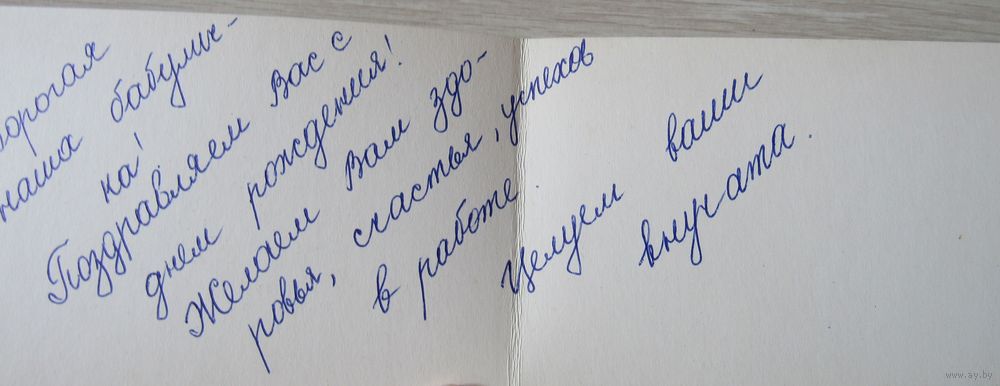 Дорогая
наша бабулич-
ка!
Поздравляем Вас с
днем рождения!
Желаем Вам здо-
ровья, счастья, успехов
в работе.
Целуем ваши
внучата.
www.ay.by